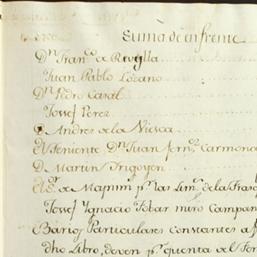 Suma de enfrente
Dn Franco de Revylla
Juan Pablo Lozano
Dn Pedro Casal
Josef Perez
Andres de la Viesca
El Teniente Dn Juan Ferns Carmona
D. Martin Yrigoyen
de la
Josef Ygnacio Tobar
Varios Particulares constantes a f
dho Libro, deven pr quenta al